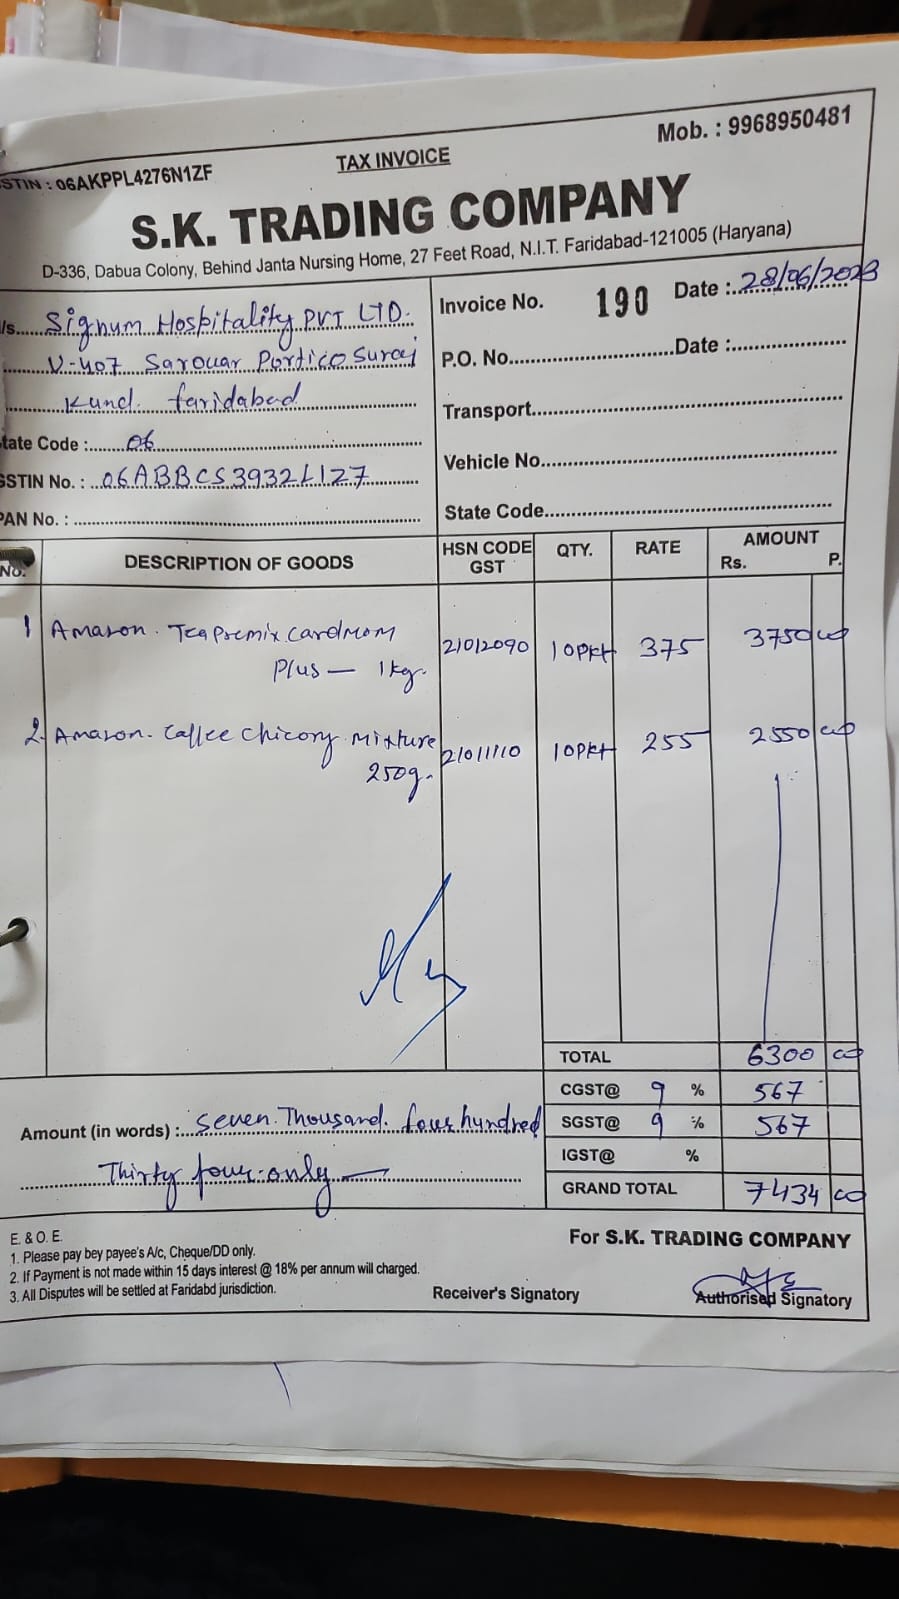 STIN : 06AKPPL4276N1ZF
TAX INVOICE
Mob. : 9968950481
S.K. TRADING COMPANY
D-336, Dabua Colony, Behind Janta Nursing Home, 27 Feet Road, N.I.T. Faridabad-121005 (Haryana)
/s. Signum Hospitality PVT LTD.
V-407 Sarouar Portico Suraj
Kund. faridabad
tate Code : 06
SSTIN No. : 06ABBCS3932L1Z7
PAN No. :
Invoice No. 190 Date : 28/06/2023
P.O. No. Date :
Transport
Vehicle No.
State Code
No. DESCRIPTION OF GOODS HSN CODE GST QTY. RATE AMOUNT Rs. P.
1 Amazon. Tea Premix Cardmom 21012090 10Pkt 375 3750 00
Plus — 1kg.
2. Amazon. Coffee Chicory Mixture 21011110 10Pkt 255 2550 00
250g.
TOTAL 6300 00
CGST@ 9 % 567
SGST@ 9 % 567
IGST@ %
GRAND TOTAL 7434 00
Amount (in words) : Seven. Thousand. four hundred
Thirty four only —
E. & O. E.
1. Please pay bey payee's A/c, Cheque/DD only.
2. If Payment is not made within 15 days interest @ 18% per annum will charged.
3. All Disputes will be settled at Faridabd jurisdiction.
For S.K. TRADING COMPANY
Receiver's Signatory
Authorised Signatory